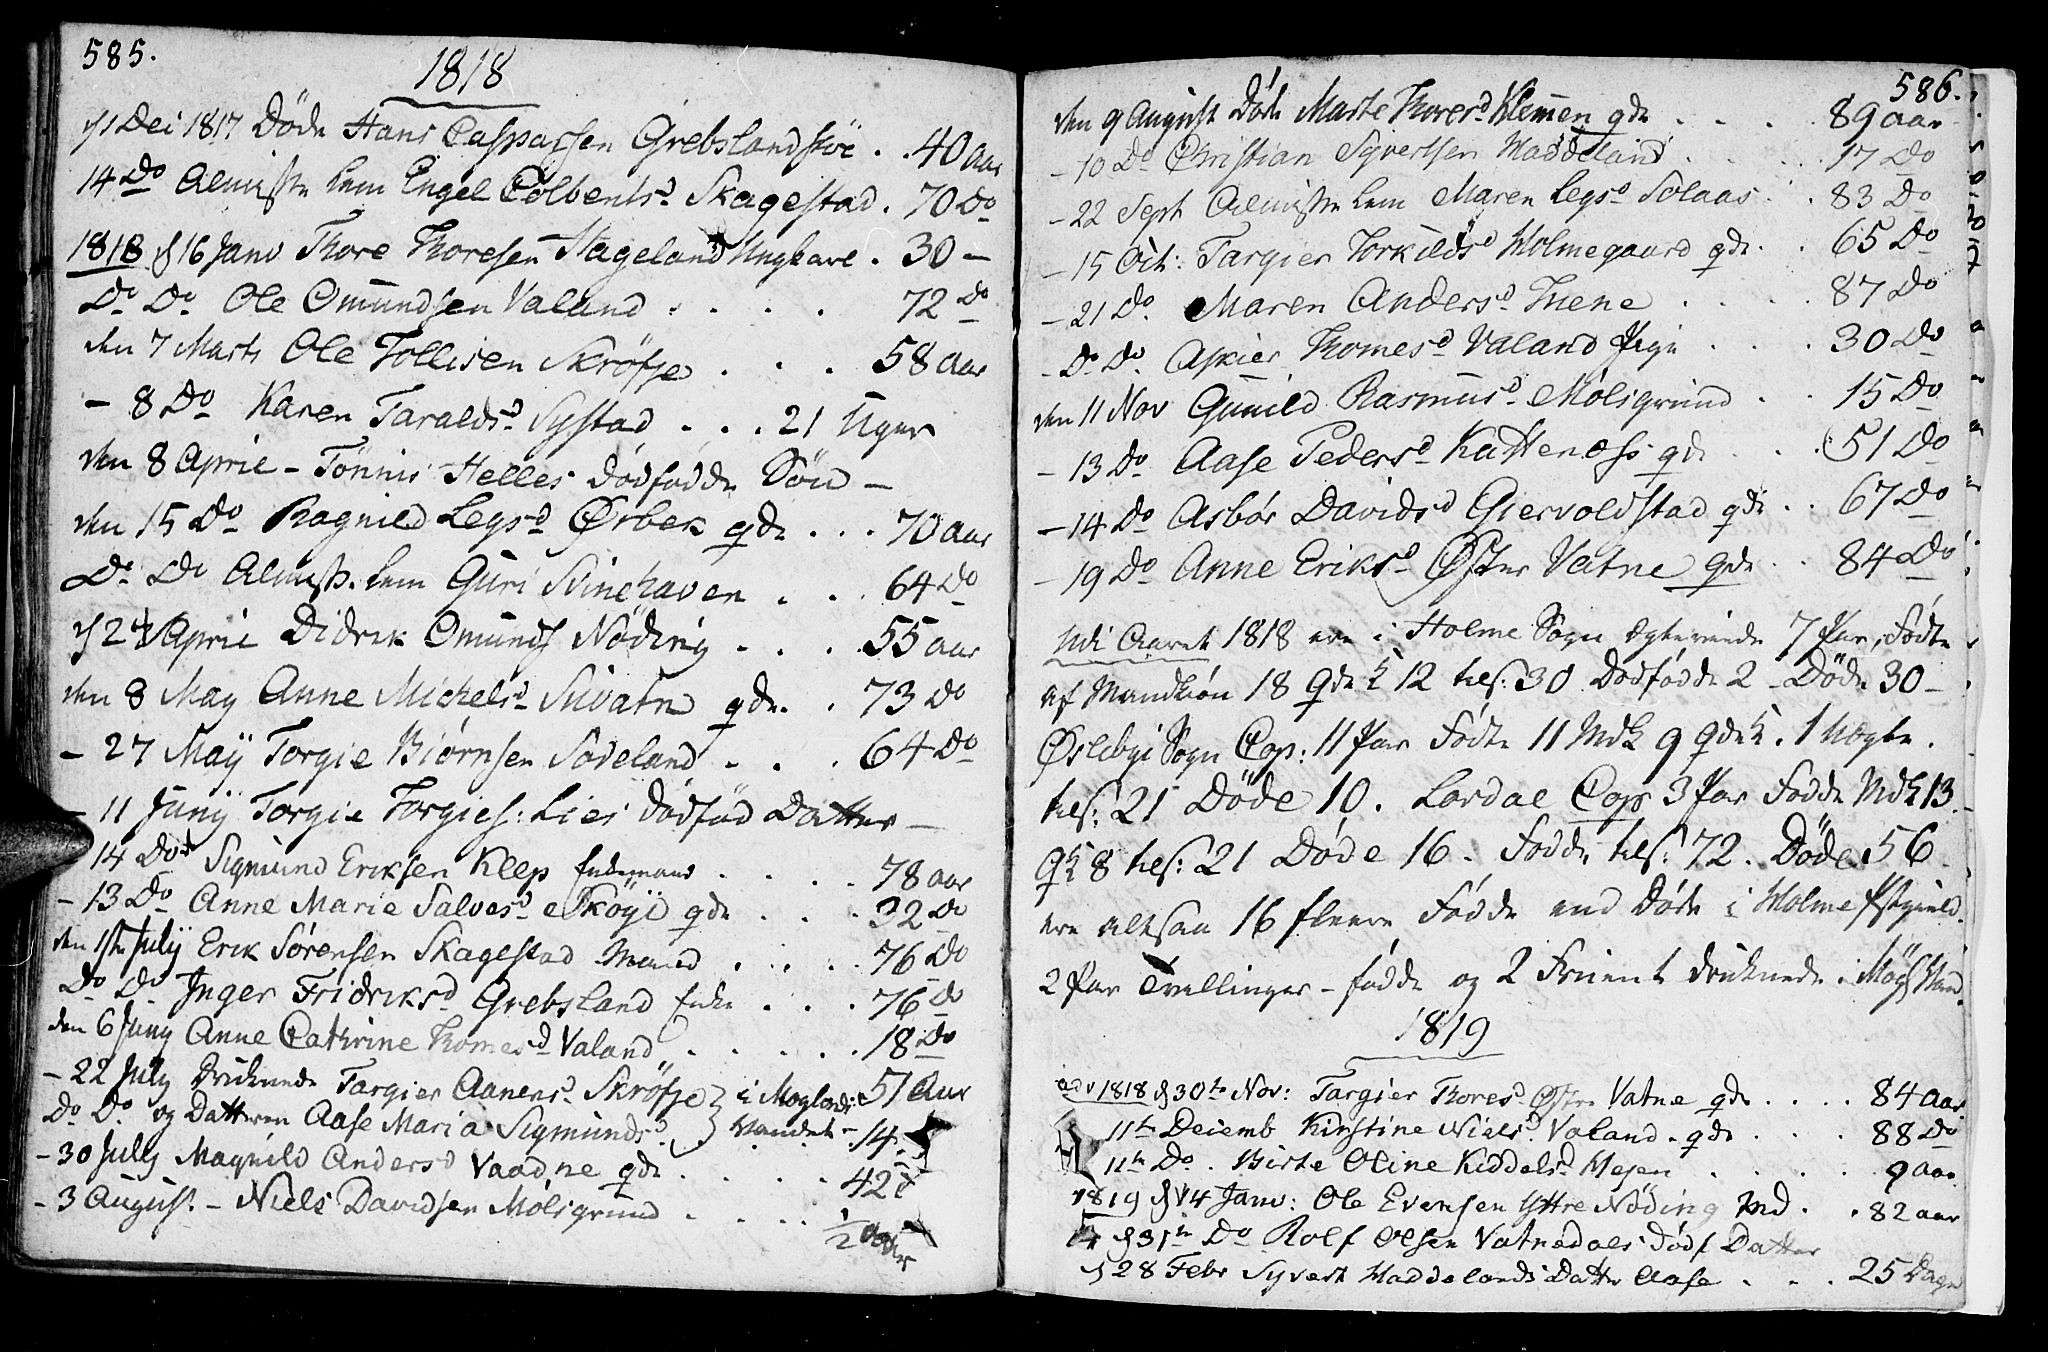 585.
1818
1 Dec 1817 Døde Hans Caspersen Grebsland 40 aar
14 Do Almisse Lem Engel Colbents d Skagestad . 70 Do
1818 d 16 Janv Thore Thoresen Hageland Ungkarl . 30 –
Do Do Ole Omundsen Valand . . . . 72 Do
den 7 Marts Ole Tollisen Skröfje . . . 58 aar
– 8 Do Karen Taralds d Systad . . . 21 Uger
den 8 April – Tönnis Helles dödfödde Sön –
den 15 Do Ragnild Legs d Örbek qde . . . 70 aar
Do Do Almiss. Lem Guri Svinehaven . . . 64 Do
d 24 April Didrik Omunds Nöding . . . . 55 aar
den 8 May Anne Michels d Sivatn qde . . 73 Do
– 27 Maÿ Torgie Biörnsen Sodeland . . . 64 Do
– 11 Junÿ Torgie Torgies: Lies dödfød Datter –
14 Do Sigmund Eriksen Klep Enkemand . . . . 78 aar
– 13 Do Anne Marie Salves d Skøÿe qde . . . 32 Do
den 1ste Julÿ Erik Sørensen Skagestad Mand . . . . 76 Do
Do Do Inger Fridriks d Grebsland Enke . . . 76 Do
den 6 Juny Anne Cathrine Thomes d Valand . . . . . 18 Do
– 22 July druknede Targier Aanens d Skröfje } i Moglands 51 Aar
Do Do og Datteren Aase Maria Sigmunds d } Vandet – 14
– 30 July Magnild Anders d Vaadne qde . . . . . 42
– 3 August – Niels Davidsen Mölsgrund . . . . 1/2
586.
den 9 August Døde Marte Thores d Klemen qde . . . . 89 aar
– 10 Do Christian Syvertsen Haddeland . . . . 17 Do
– 22 Sept Almisse Lem Maren Legs d Solaas . . 83 Do
– 15 Oct: Targier Torkilds d Holmegaard qde . . 65 Do
– 21 Do Maren Anders d Tnene . . . . 87 Do
– Do Do Asier Thomes d Valand Pige . . . 30 Do
den 11 Nov Gunild Rasmus d Mölsgrund . . 15 Do
– 13 Do Aase Peders d Kattenæss qde . . . 51 Do
– 14 Do Asbör Davids d Giervoldstad qde . . 67 Do
– 19 Do Anne Eriks d Öster Vatne qde . . 84 Do
Udi Aaret 1818 ere i Holme Sogn Egteviede 7 Par, Födte
af Mandkiön 18 Qdek 12 tils: 30 Dödfödde 2 – Döde 30 –
Öslebyi Sogn Cop: 11 Par Födte 11 Mdk 9 Qdek. 1 Uegte.
tils: 21 Döde 10. Lavdal Cop 3 Par Födde Mdk 13.
Qk 8 tils: 21 Døde 16. Födde tils: 72. Döde 56
ere altsaa 16 fleere Födde end Döde i Holme Pstgield.
2 Par Tvellinger – födde og 2 Fruent druknede i Mögl Vand.
1819
adv 1818 d 30te Nov: Targier Thores d Østre Vatne qde . . . . 84 Aar
11te Decemb Kirstine Niels d Valand . qde . . . . 88 Do
11te Do . Birte Oline Kiddels d Hesen . . . . 9 aar
1819 d 14 Janv: Ole Evensen Yttre Nöding Md . . 82 aar
d 31te Do Rolf Olsen Vatnedals dödf Datter
d 28 Febr Syvert Haddelands Dattr Aase . . . 25 Dage